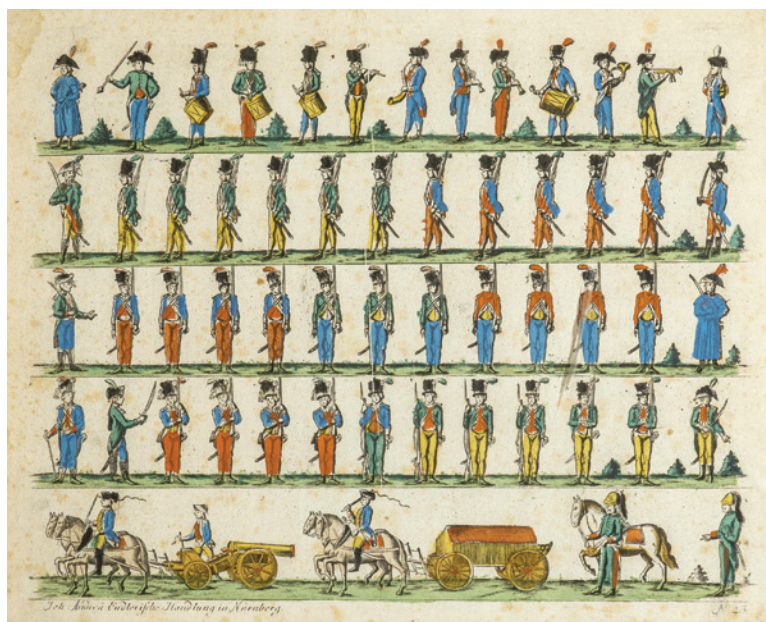 Joh. Andreä Endterische Handlung in Nürnberg.